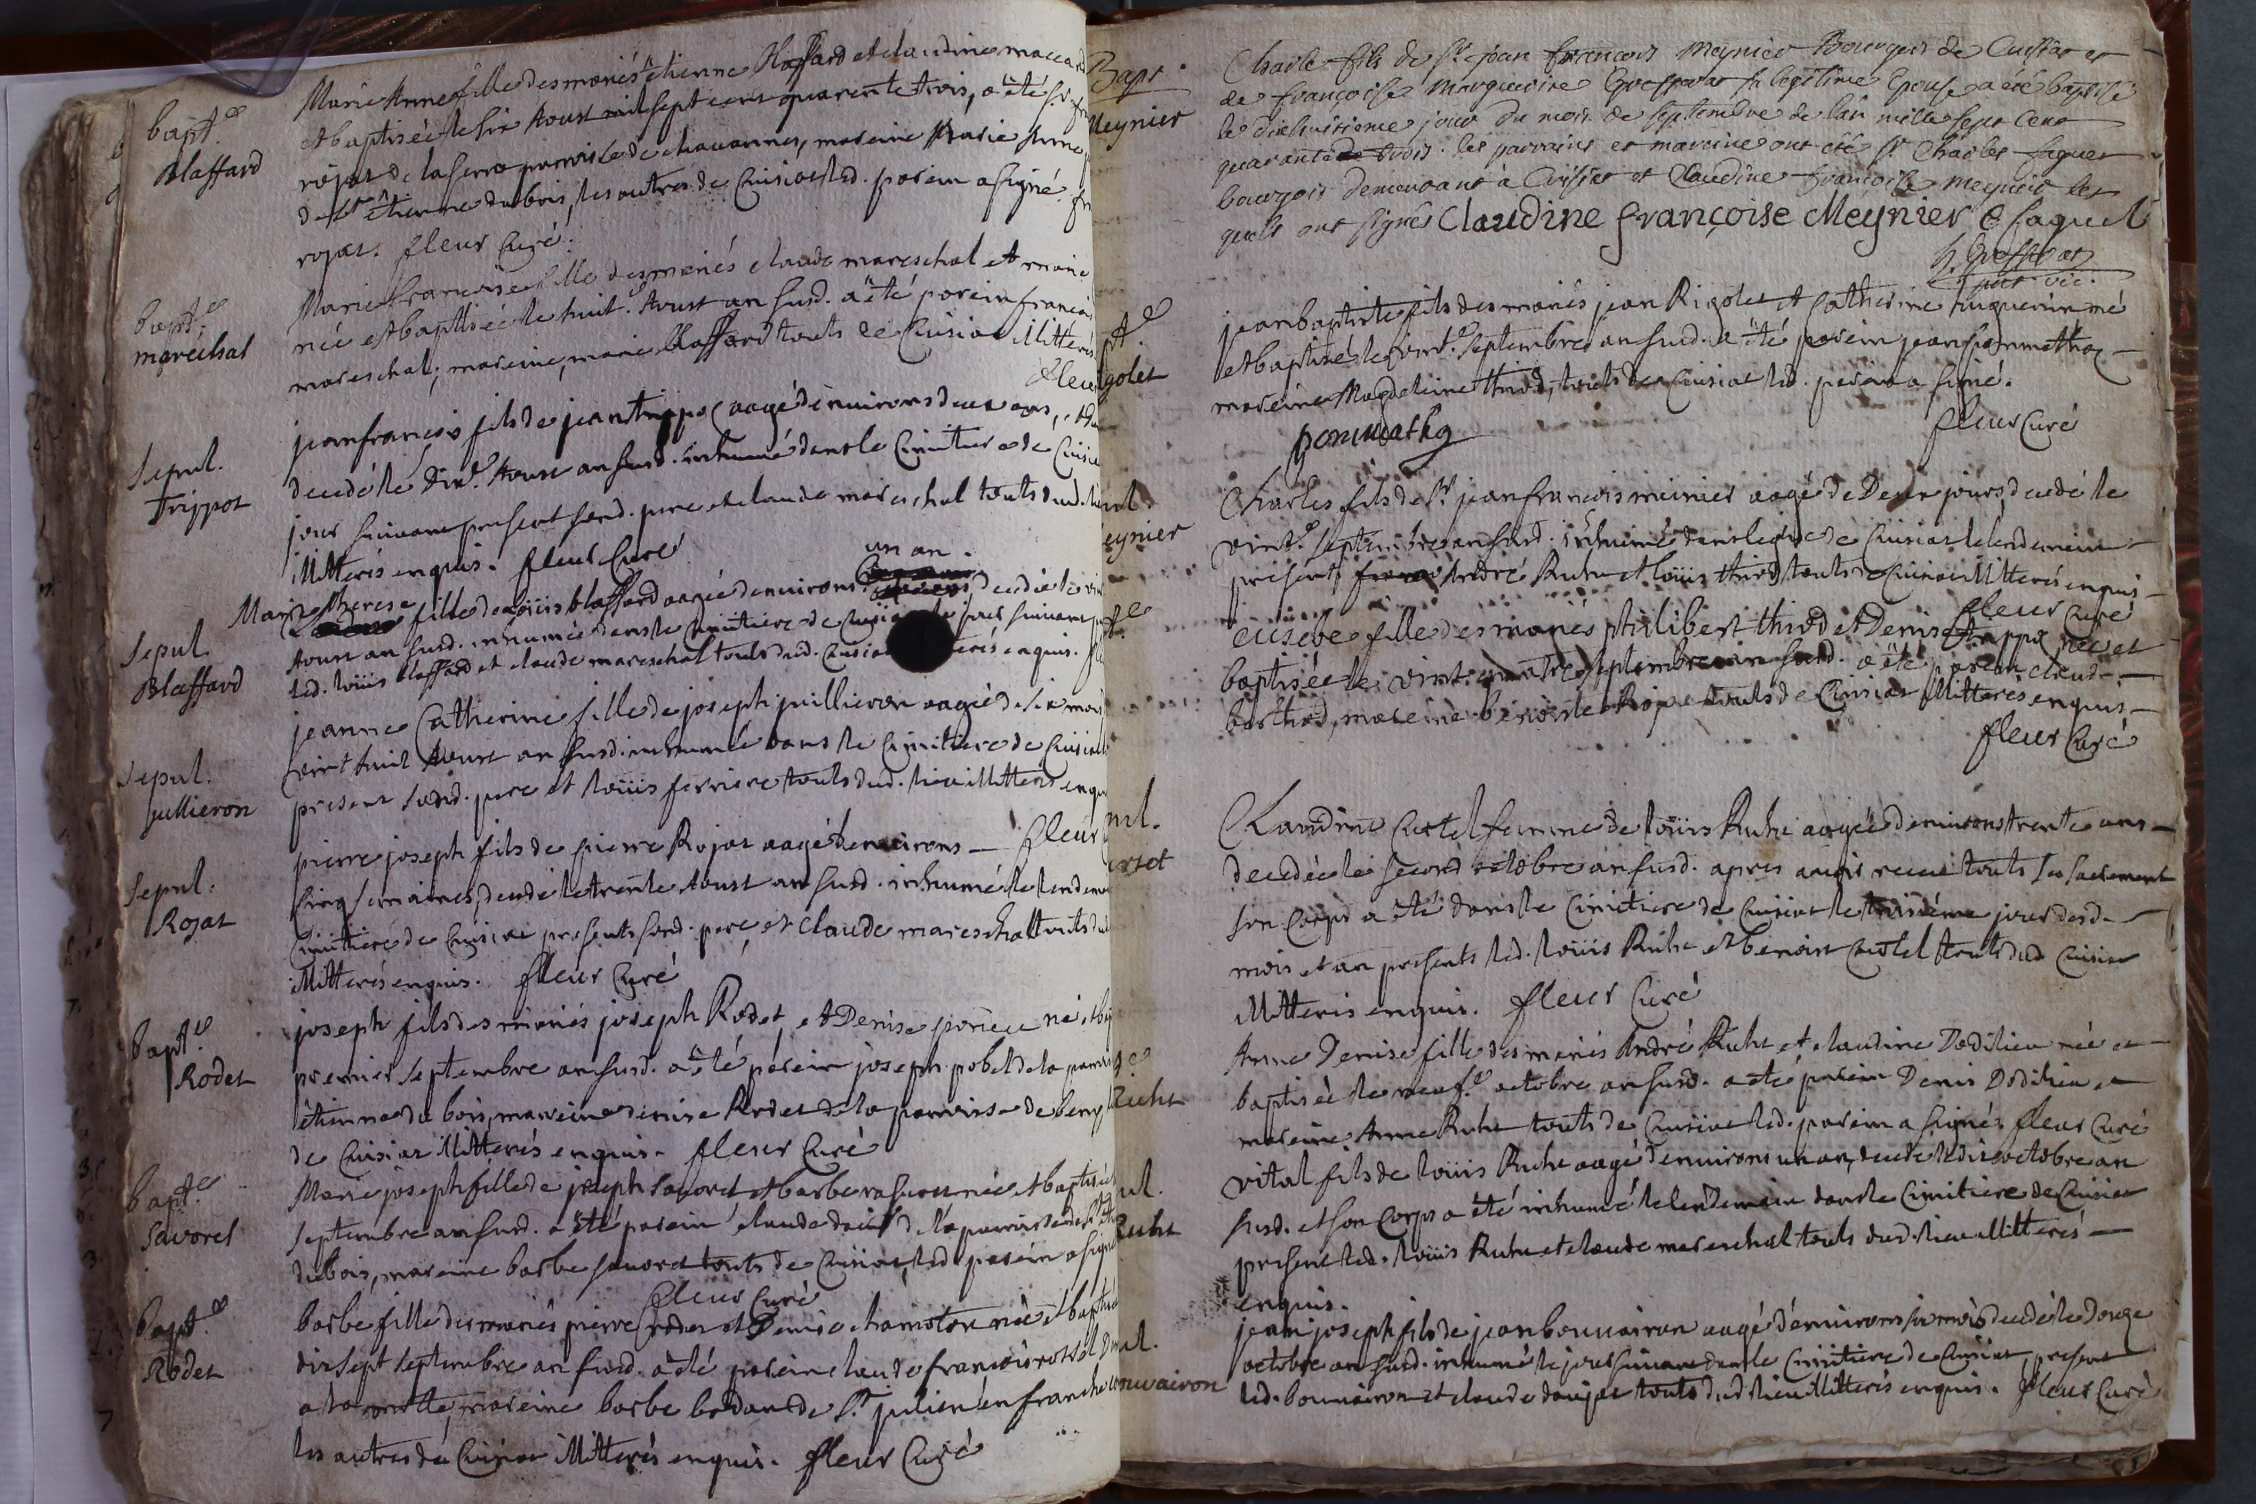 bapt.e
Blaffard
Marie Anne fille des mariés étienne Blaffard et claudine maccard
et baptisée le six Aoust mil sept cent quarente trois, a été
rojat de la serra parroisse de chavannes, mareine Marie Anne
de St étienne du bois, les autres de Cuisiat led. parein a signé.
rojat. fleur Curé.
bapt.e
maréchal
Marie françoise fille des mariés claude mareschal et marie
née et baptisée le huit.e Aoust an susd. a été parein françois
mareschal, mareine, marie Blaffard touts de Cuisiat illitterés
fleur
Sepul.
Trippoz
jean francois fils de jean trippoz aagé d'environs deux ans,
decedé le dix.e Aoust an susd. inhumé dans le Cimitiere de Cuisiat
jour suivant present sond. pere et claude mareschal touts dud.
illitterés enquis. fleur Curé
Sepul.
Blaffard
un an.
Marie therese fille de loüis blaffard aagée d'environs decedée le
Aoust an susd. inhumée dans le Cimitiere de Cuisiat le jour suivant
led. loüis blaffard et claude mareschal touts dud. Cuisiat enquis.
Sepul.
jullieron
jeanne Catherine fille de joseph juillieron aagée de six mois
vint huit Aoust an susd. inhumée dans le Cimitiere de Cuisiat
present sond. pere et loüis ferriere touts dud. lieu illitterés enquis
fleur
Sepul.
Rojat
pierre joseph fils de pierre Rojat aagé d'environs
Cinq semaines, decedé le trente Aoust an susd. inhumé le lendemain
Cimitiere de Cuisiat presents sond. pere et claude mareschal touts dud
illitterés enquis. fleur Curé
bapt.e
Rodet
joseph fils des mariés joseph Rodet et Denise né et
premier septembre an susd. a été parein joseph pobel de la parroisse
étienne du bois, mareine denise Rodet de la parroisse de
de Cuisiat illitterés enquis. fleur Curé
bapt.e
Savoret
Marie joseph fille de joseph Savoret et barbe née et baptisée
septembre an susd. a été parein claude de la parroisse de St
dubois, mareine barbe savoret touts de Cuisiat, led. parein a signé
fleur Curé
bapt.e
Rodet
barbe fille des mariés pierre Rodet et Denise chamoton née et baptisée
dix sept septembre an susd. a été parein claude francois
mareine barbe de St. julien en franche
les autres de Cuisiat illitterés enquis. fleur Curé
Bapt.
Meynier
Charle fils de Sr. jean françois Meynier Bourgeois de Cuisiat et
de françoise Marguerite Greffeat sa legitime Epouse a été baptisé
le dixhuitieme jour du mois de septembre de l'an mille sept cent
quarante trois. les parrains et maraine ont été Sr. Charles faguet
bourgois demeurant à Cuisiat et Claudine françoise Meynier les
quels ont signés Claudine françoise Meynier C faguet
vic.
golet
jean baptiste fils des mariés jean Rigolet et Catherine huguenin né
et baptisé le vint.e septembre an susd. a été parein jean
mareine Magdeleine thivod, touts de Cuisiat led. parein a signé.
fleur Curé
eynier
Charles fils de Sr. jean francois meinier aagé de Deux jours, decedé le
vint.e septembre an susd. inhumé dans leglise de Cuisiat le lendemain
presents André Ruhe et loüis thivod touts de Cuisiat illitterés enquis
fleur Curé
eusebe fille des mariés philibert thivod et Denise trappoz née et
baptisée le vint quatre septembre an susd. a été parein claude
berthod, mareine benoiste Roze touts de Cuisiat illitterés enquis
fleur Curé
Claudine Curtel femme de loüis Ruhe aagée d'environs trente ans
decedée le second octobre an susd. apres avoir receu touts ses sacrement
son corps a été dans le Cimitiere de Cuisiat le troisiéme jour desd.
mois et an presents led. loüis Ruhe et benoist Curtel touts dud Cuisiat
illitteris enquis. fleur Curé
Ruhe
Anne Denise fille des mariés André Ruhe et claudine Dodilieu née et
baptisée le neuf.e octobre an susd. a été parein Denis Dodilieu et
mareine Anne Ruhe touts de Cuisiat led. parein a signé. fleur Curé
Ruhe
vital fils de loüis Ruhe aagé d'environs un an, decedé le dix octobre an
susd. et son Corps a été inhumé le lendemain dans le Cimitiere de Cuisiat
present led. loüis Ruhe et claude mareschal touts dud. lieu illitterés
enquis.
ouvairon
jean joseph fils de jean bouvairon aagé d'environs six mois decedé le douze
octobre an susd. inhumé le jour suivant dans le Cimitiere de Cuisiat present
led. bouvairon et claude donjat touts dud lieu illitterés enquis. fleur Curé